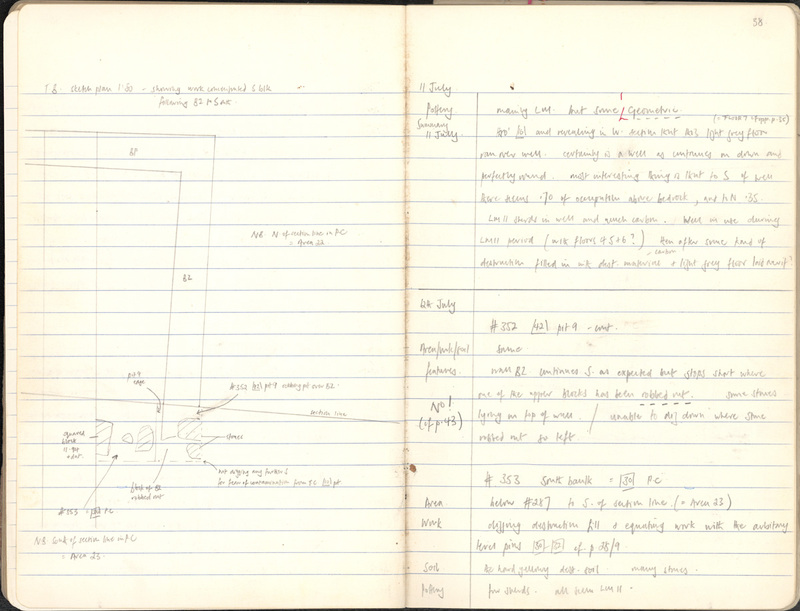 showing work
following B2 to S.
B8
NB. N of section line in PC
= Area 23
B2
pit 9
#352 robbing pit over B2.
section line
squared block
stones
Not digging any further S
for fear of contamination from
block of B2
robbed out
#353 = PC
NB South of section line in PC
= Area 23.
38
11 July
Pottery mainly LM. but some Geometric.
Summary
11 July and revealing in W. section that light grey floor
ran over well. certainly is a well as continues on down and
perfectly round. most interesting thing is that to S of well
there seems .70 of occupation above bedrock, and to N .35.
LM II sherds in well and much carbon. Well in use during
LM II period (with floors 4 5 + 6?) then after some kind of
carbon
destruction filled in with dest. materials + light grey floor laid over it?
12th July
#352 [42] pit 9 - cont.
same
features. wall B2 continues S. as expected but stops short where
one of the upper blocks has been robbed out. some stones
No!
(cf p.43)
lying on top of wall / unable to dig down where stone
robbed out so left
#353 South baulk = PC
Area below #287 to S. of section line. (= Area 23)
Work digging destruction fill + equating work with the arbitrary
level pins cf. p 28/9.
Soil the hard yellowy dest. soil. many stones.
Pottery few sherds. all seem LM II.